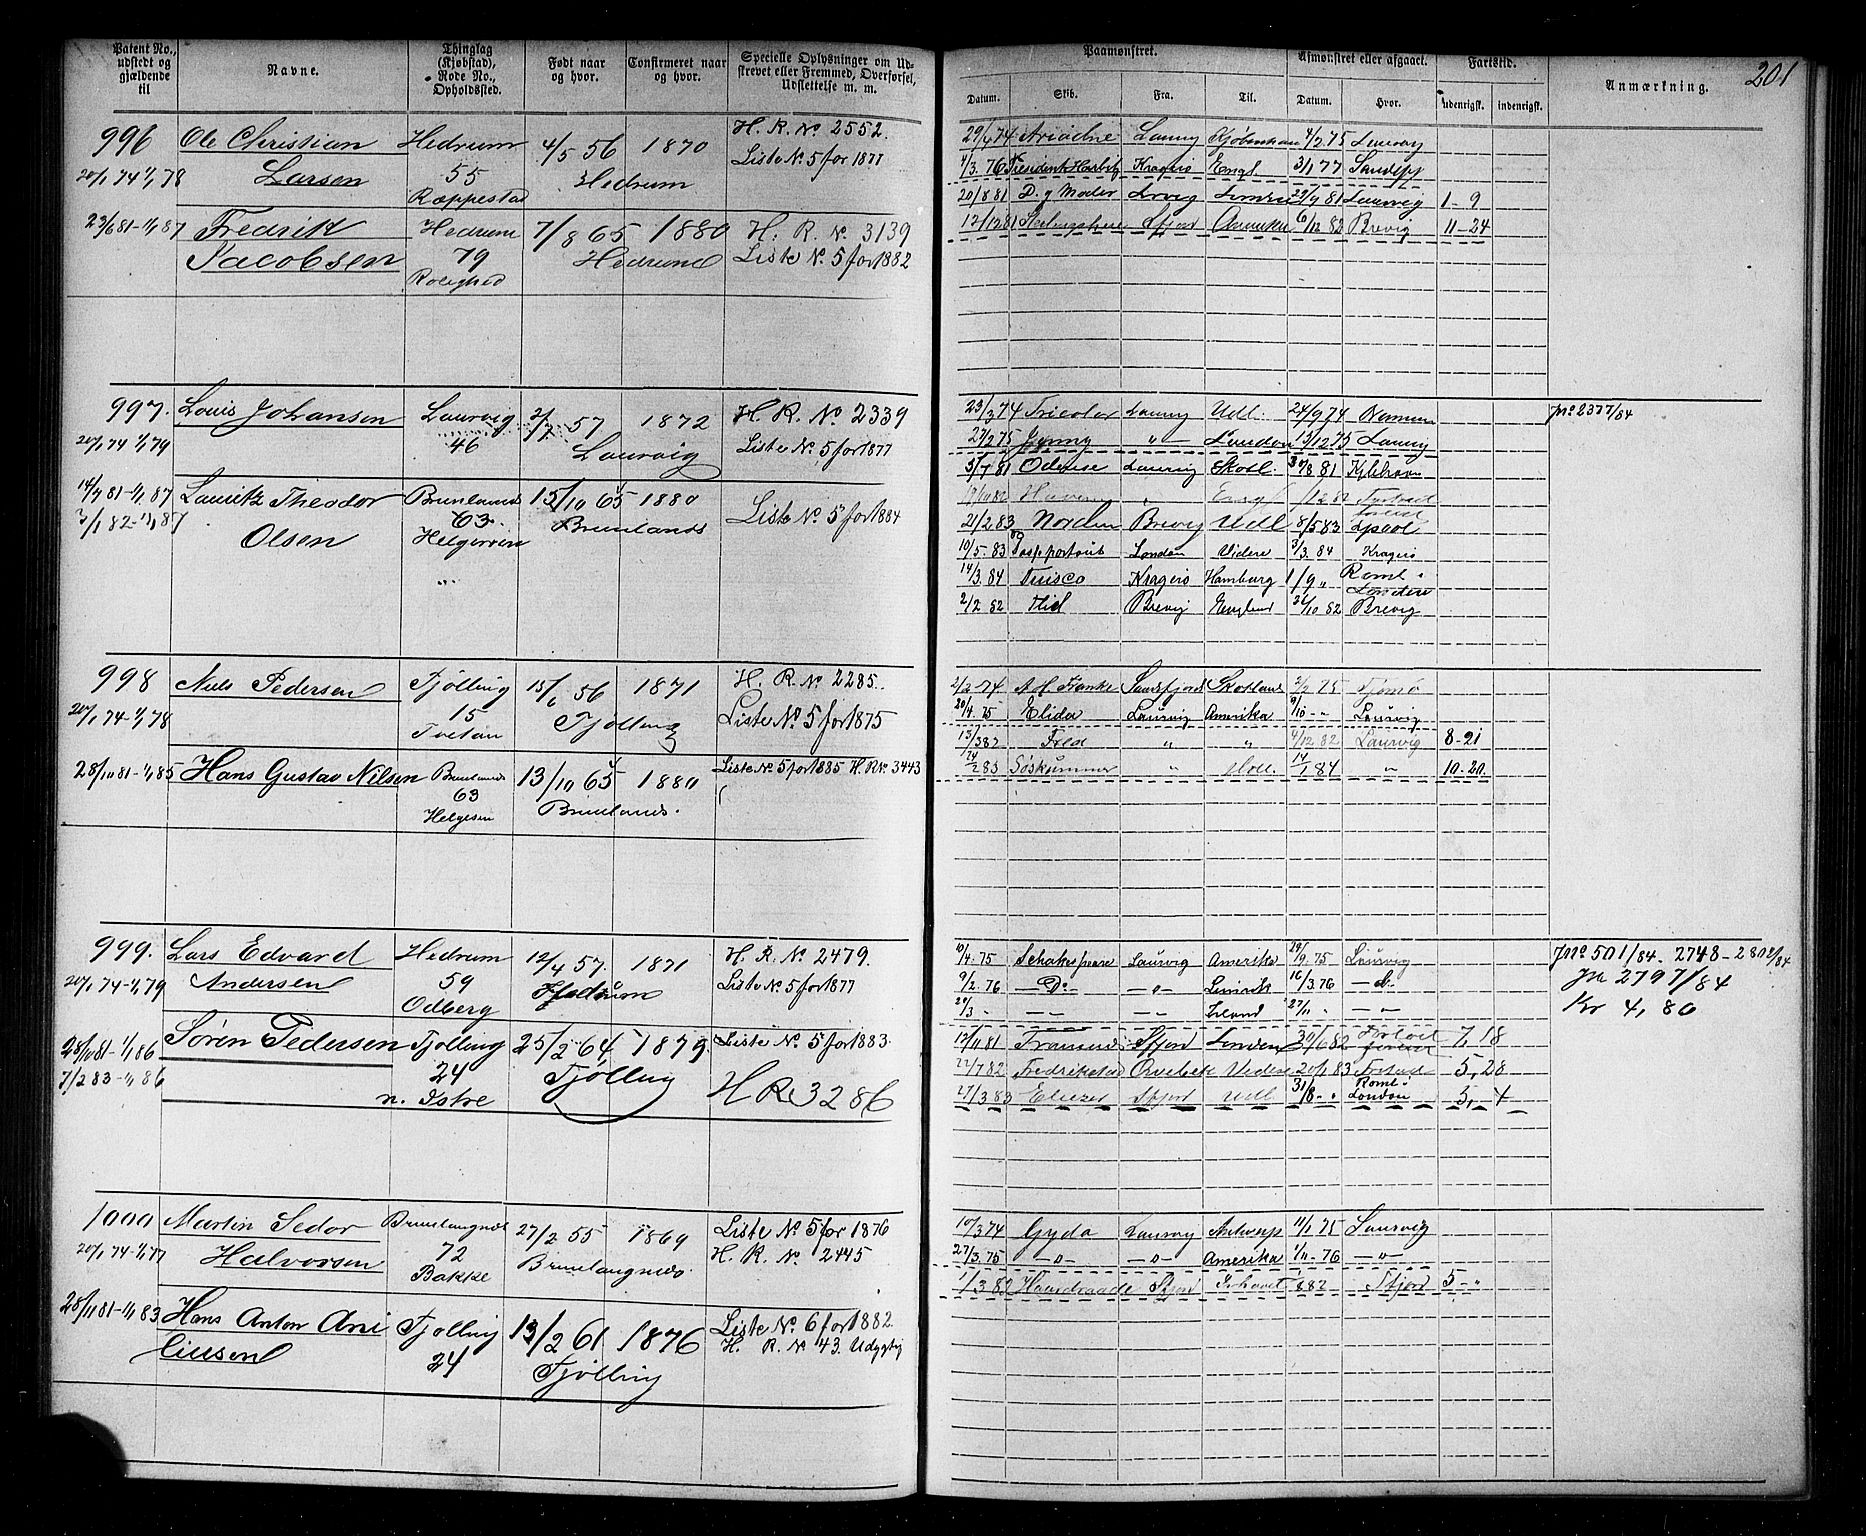 Patent No., udstedt og gjældende til
Navne.
Thinglag (Kjøbstad), Rode No., Opholdssted.
Født naar og hvor.
Confirmeret naar og hvor.
Specielle Oplysninger om Udskrevet eller Fremmed, Overførsel, Udslettelse m. m.
996 Ole Christian Hedrum 4/5 56 1870 H. R. No 2552.
20/1 74 1/1 78 Larsen 55 Hedrum Liste No 5 for 1877
Ræppestad
23/6 81-1/1 87 Fredrik Hedrum 7/8 65 1880 H. R. No. 3139
Jacobsen 79 Hedrum Liste No. 5 for 1882
Rolighed
997. Louis Johansen Laurvig 2/7 57 1872 H. R. No 2339
20/1 74 1/1 79 46 Laurvig Liste No 5 for 1877
14/7 81-1/1 87 Lauritz Theodor Brunlanæs 15/10 65 1880
3/1 82-1/1 87 Olsen 63 Brunlanæs Liste No 5 for 1884
998 Niels Pedersen Tjølling 15/6 56 1871 H. R. No 2285.
20/1 74-1/1 78 15 Tjølling Liste No 5 for 1875
Tvetan
28/10 81-1/1 85 Hans Gustav Nilsen Brunlanæs 13/10 65 1880 Liste No 5 for 1885 H. R No 3443
63 Brunlanæs.
Helgesen
999. Lars Edvard Hedrum 12/4 57. 1871 H. R. No 2479.
20/1 74-1/1 79 Andersen 59 Liste No 5 for 1877
Odberg
25/10 81-1/1 86 Søren Pedersen Tjølling 25/2 64 1879. Liste No 5 for 1883.
7/2 83-1/1 86 24 Tjølling H R 3286
n. Istre
1000 Martin Sedor 27/2 55 1869 Liste No 5 for 1876
20/1 74-1/1 77 Halvorsen 72 H. R. No 2445
Bakke
28/11 81-1/1 83 Hans Anton Tjølling 13/2 61 1876 Liste No. 6 for 1882
24 Tjølling H. R. No 43. Udygtig
201
Paamønstret.
Afmønstret eller afgaaet.
Fartstid.
Anmærkning.
Datum. Skib. Fra. Til. Datum. Hvor. udenrigsk. indenrigsk.
29/4 74 Ariadne Laurvig Kjøbenhavn 4/2 75 Laurvig
4/3. 76 President Harbitz Kragerø Engl. 3/1 77 Sandefj
20/8 81 D. g Moder Lrvig London 27/9 81 Laurvig 1-9
12/12 81 Sfjord Amerika 6/12 82 Brevig 11-24
23/3 74 Tricolor Laurvig Udl. 24/9 74 Jno 2377/84
27/2 75 Jynny -"- London 13/12 75 Laurvig
3/7 81 Odense Laurvig Skotl. 30/8 81
Engl
21/2 83 Norden Brevig Udl 8/5 83 Lpool
10/5. 83 London Videre 3/3. 84 Kragerø
14/3. 84 Tuisco Kragerø Hamburg 1/9 " Roml.
London
2/2 82 Flid Brevig England 31/10 82 Brevig
2/2 74 A H. Franke Sandefjord Skotland 2/2 75 Tjømø
20/4. 75 Elida Laurvig Amerika 9/10 - " Laurvig
13/3 82 Fred " " 4/12 82 Laurvig 8-21
24/2 83 Søskummer " Holl. 14/1 84 " 10-20
10/4. 75 Schakespeare Laurvig Amerika 29/9. 75 Laurvig Jno 501/84. 2748-2802/84
9/2. 76 -Do- -"- Limrik 16/3. 76 Jn 2797/84
29/3 " -"- -"- Irland 27/11 " -"- Kr 4,86
12/11 81 Sfjord London 30/6 82 7, 18
22/7 82 Fredrikstad Videre 20/1 83 5, 28
27/3 83 Eliezer Sfjord Udl 31/8 - " Roml. London 5, 4
10/3 74 Gyda Laurvig Antwerp 11/1 75 Laurvig
27/3. 75 -"- -"- Amerika 1/11-76 -"-
1/3 82 Haardraade Sfjord Ishavet 82 Sfjord 5-"